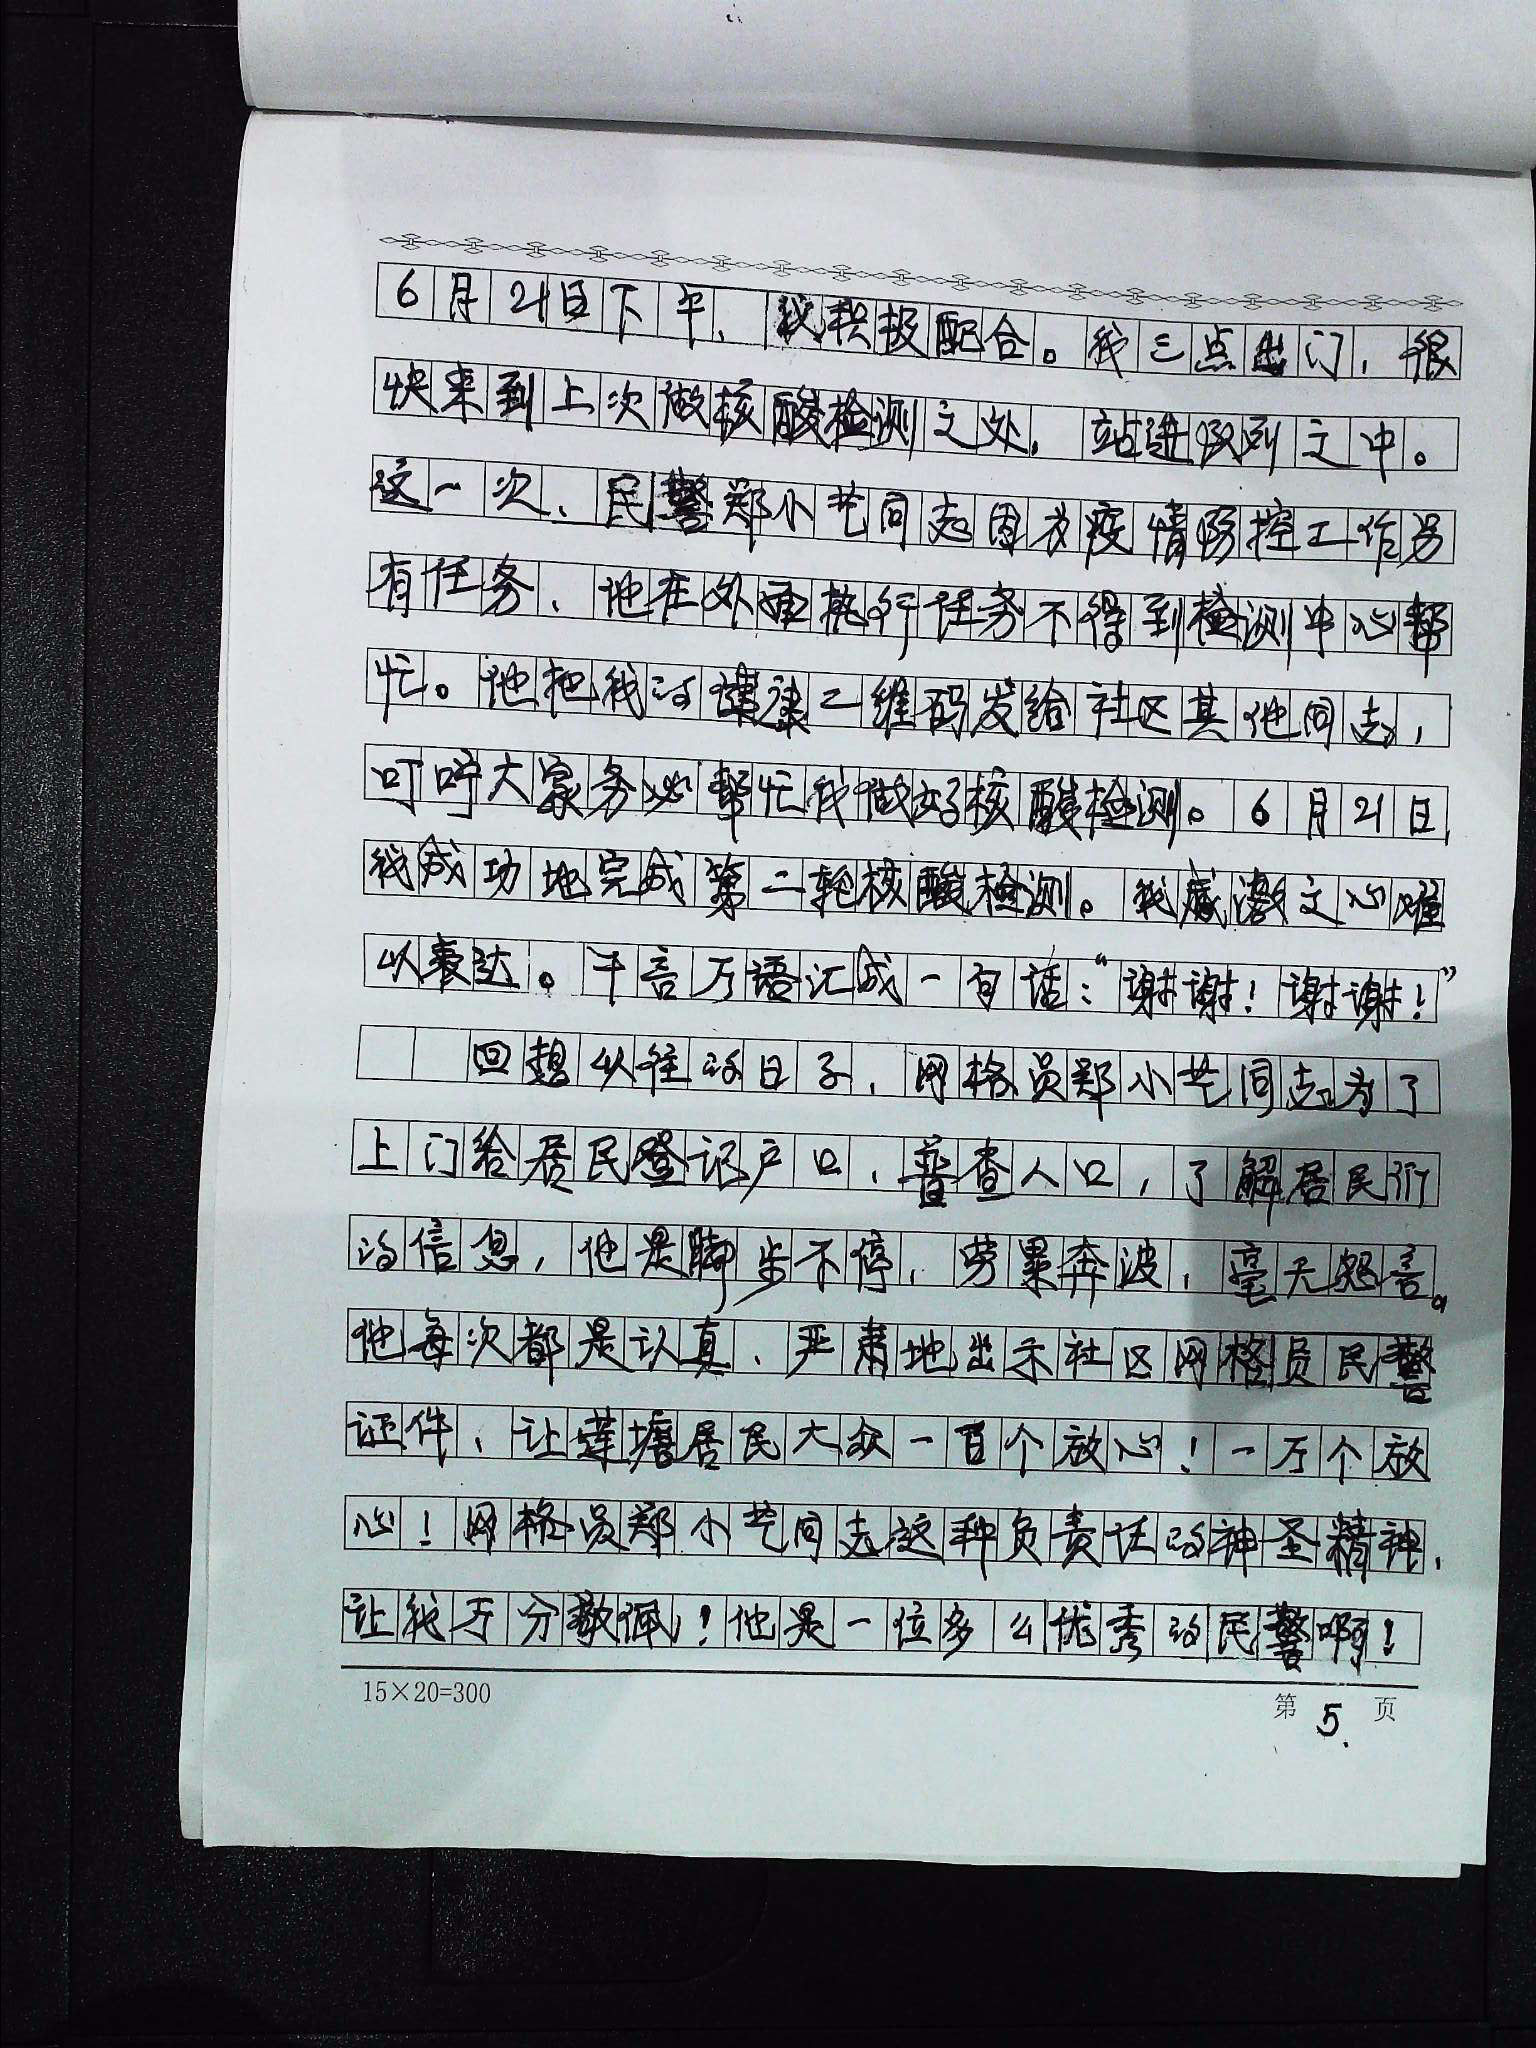 6月21日下午，我积极配合。我三点出门，很
快来到上次做核酸检测之处，站进队列之中。
这一次，民警郑小艺同志因为疫情防控工作另
有任务，他在外面执行任务不得到检测中心帮
忙。他把我的健康二维码发给社区其他同志，
叮咛大家务必帮忙我做好核酸检测。6月21日，
我成功地完成第二轮核酸检测。我感激之心难
以表达。千言万语汇成一句话：“谢谢！谢谢！”
回想以往的日子，网格员郑小艺同志为了
上门给居民登记户口，普查人口，了解居民们
的信息，他是脚步不停，劳累奔波，毫无怨言。
他每次都是认真、严肃地出示社区网格员民警
证件，让莲塘居民大众一百个放心！一万个放
心！网格员郑小艺同志这种负责任的神圣精神，
让我万分敬佩！他是一位多么优秀的民警啊！
15×20=300
第5页